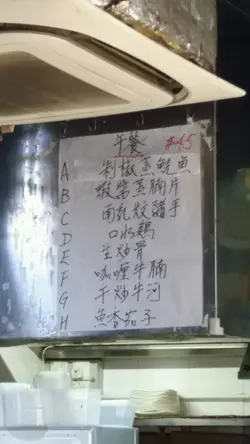 午餐 $45
A 剁椒蒸鱿魚
B 蝦醬蒸腩片
C 南乳炆豬手
D 口水鷄
E 生炒骨
F 咖喱牛腩
G 干炒牛河
H 魚香茄子